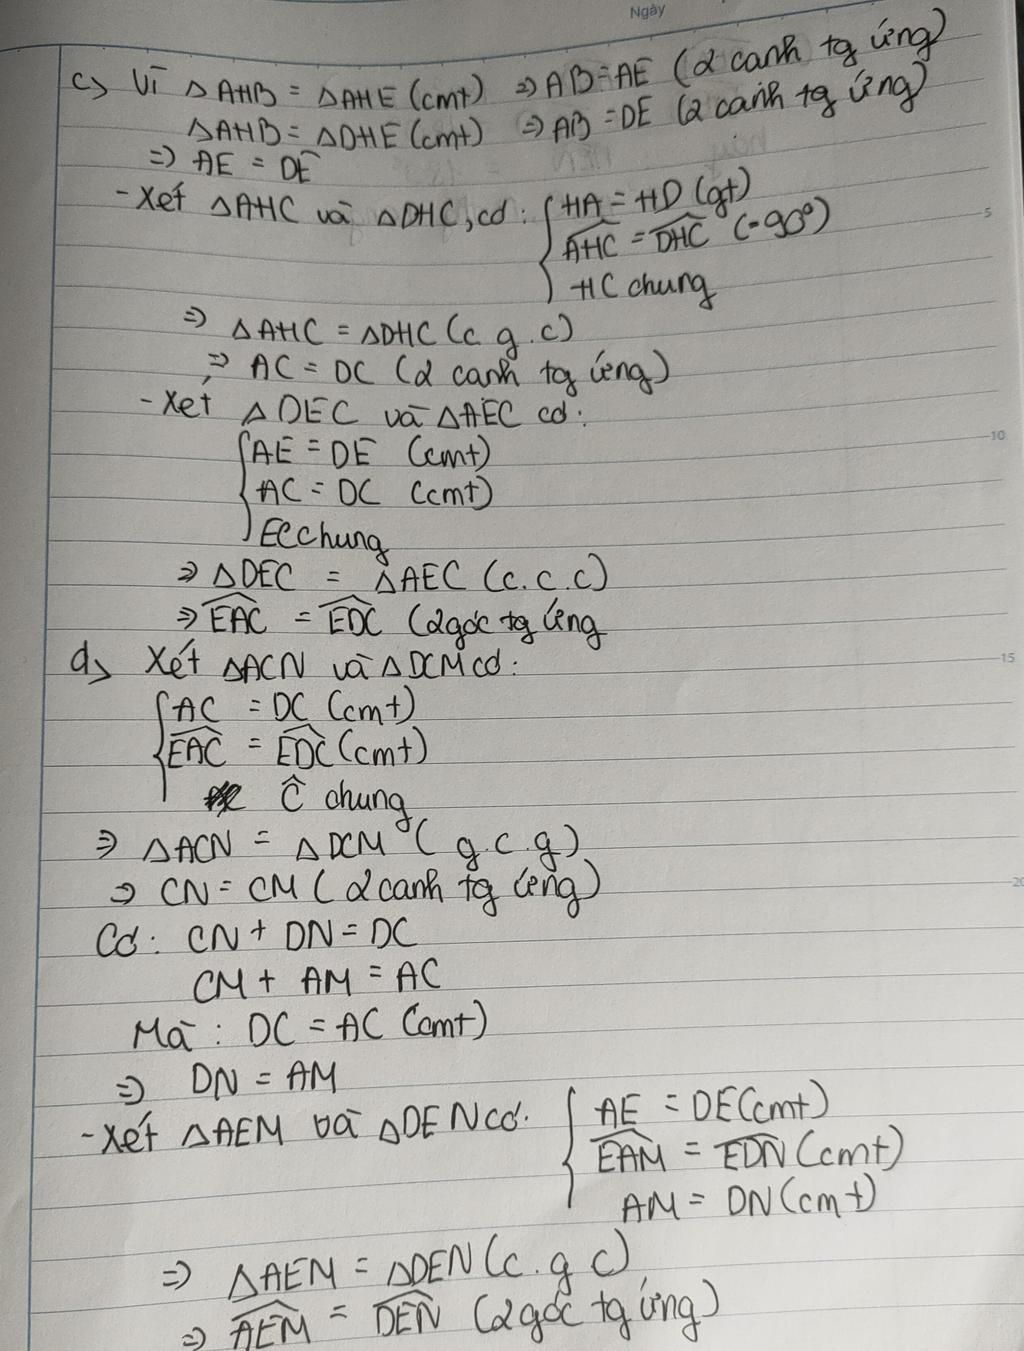 Ngày
c) Vì ΔAHB = ΔAHE (cmt) ⇒ AB = AE (2 cạnh tg ứng)
ΔAHB = ΔDHE (cmt) ⇒ AB = DE (2 cạnh tg ứng)
⇒ AE = DE
- Xét ΔAHC và ΔDHC, có: { HA = HD (gt)
\widehat{AHC} = \widehat{DHC} (=90°)
HC chung
⇒ ΔAHC = ΔDHC (c g.c)
⇒ AC = DC (2 cạnh tg ứng)
- Xét ΔDEC và ΔAEC có:
{ AE = DE (cmt)
AC = DC (cmt)
EC chung
⇒ ΔDEC = ΔAEC (c.c.c)
⇒ \widehat{EAC} = \widehat{EDC} (2 góc tg ứng
d) Xét ΔACN và ΔDCM có:
{ AC = DC (cmt)
\widehat{EAC} = \widehat{EDC} (cmt)
Ĉ chung
⇒ ΔACN = ΔDCM (g.c.g)
⇒ CN = CM (2 cạnh tg ứng)
Có: CN + DN = DC
CM + AM = AC
Mà: DC = AC (cmt)
⇒ DN = AM
- Xét ΔAEM và ΔDEN có: { AE = DE (cmt)
\widehat{EAM} = \widehat{EDN} (cmt)
AM = DN (cmt)
⇒ ΔAEM = ΔDEN (c.g c)
⇒ \widehat{AEM} = \widehat{DEN} (2 góc tg ứng)
5
10
15
20